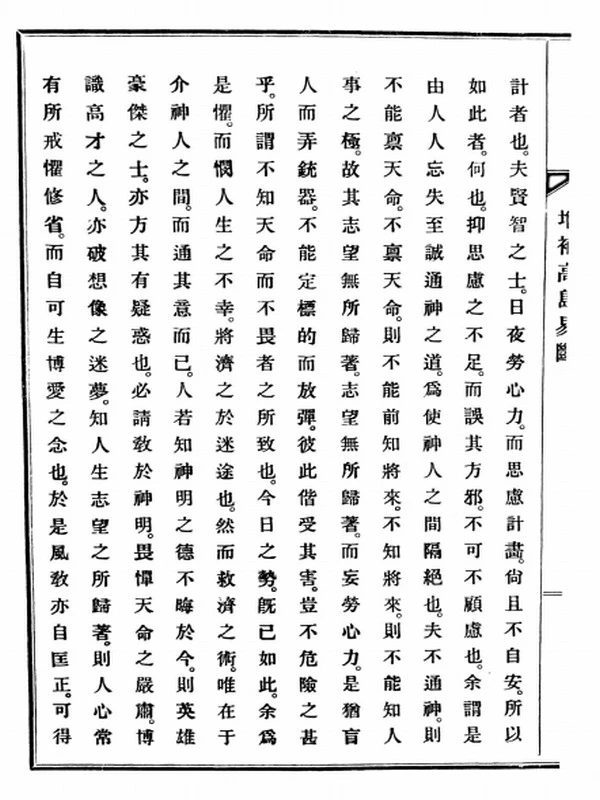 計者也。夫賢智之士。日夜勞心力。而思慮計畫。尙且不自安。所以
如此者。何也。抑思慮之不足。而誤其方邪。不可不顧慮也。余謂是
由人人忘失至誠通神之道。爲使神人之間隔絕也。夫不通神。則
不能稟天命。不稟天命。則不能前知將來。不知將來。則不能知人
事之極。故其志望無所歸著。志望無所歸著。而妄勞心力。是猶盲
人而弄銃器。不能定標的而放彈。彼此偕受其害。豈不危險之甚
乎。所謂不知天命而不畏者之所致也。今日之勢。旣已如此。余爲
是懼。而憫人生之不幸。將濟之於迷途也。然而救濟之術。唯在于
介神人之間。而通其意而已。人若知神明之德不晦於今。則英雄
豪傑之士。亦方其有疑惑也。必請敎於神明。畏憚天命之嚴肅。博
識高才之人。亦破想像之迷夢。知人生志望之所歸著。則人心常
有所戒懼修省。而自可生博愛之念也。於是風敎亦自匡正。可得
增補高島易斷